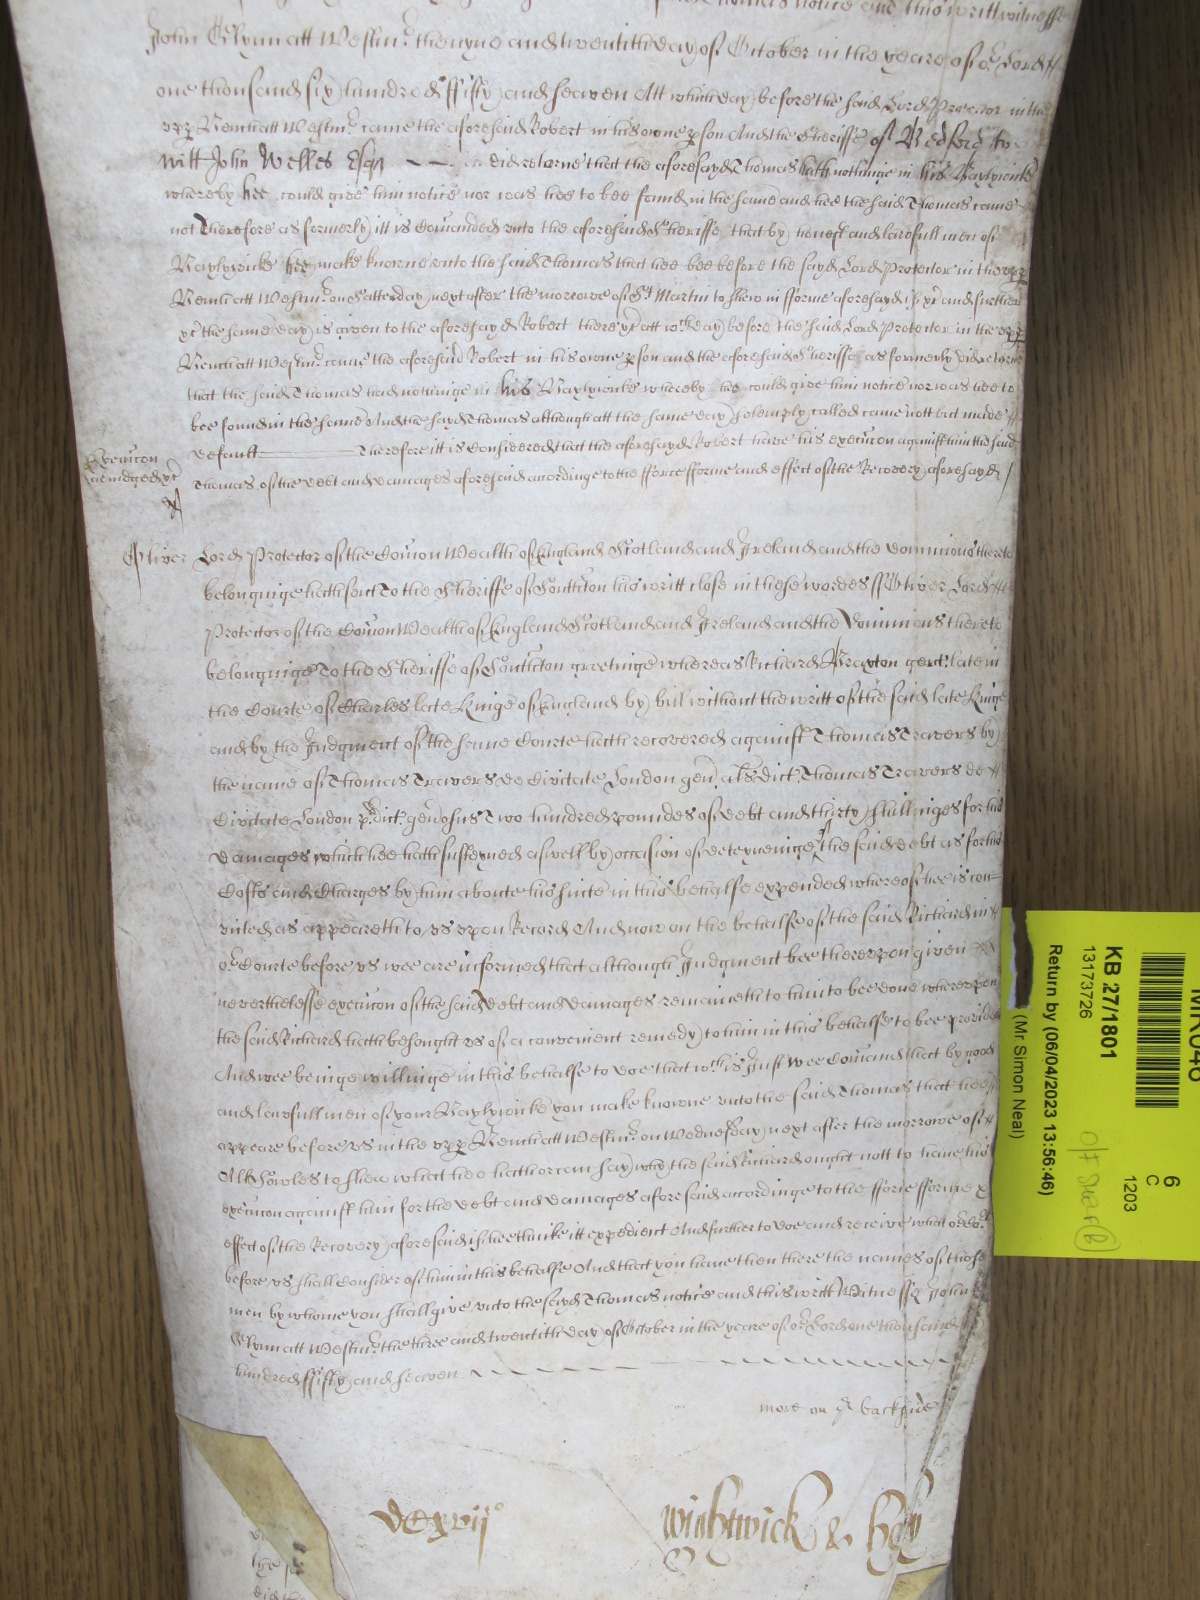 Thomas notice and this writt witnesse
John Glynn att Westm~ the nyne and twentith day of October in the yeare of o~r Lord
one thousand six hundred ffifty and seaven Att which day before the said Lord Protector in the
upp~ Bench att Westm~ came the aforesaid Robert in his owne p~son And the Sheriffe of Bedford to
witt John Welles Esq~ did retorne that the aforesayd Thomas hath nothinge in his Baylywicke
whereby hee could give him notice nor was hee to bee found in the same and hee the said Thomas came
not Therefore as formerly itt is Com~anded unto the aforesaid Sheriffe that by honest and lawfull men of
Baylywicke hee make knowne unto the said Thomas that hee bee before the sayd Lord Protector in the upp~
Bench att Westm~ on Satterday next after the morrowe of S~t Martin to shew in fforme aforesayd if &c and further
&c the same day is given to the aforesayd Robert there &c att w~ch day before the said Lord Protector in the upp~
Bench att Westm~ came the aforesaid Robert in his owne p~son and the aforesaid Sheriffe as formerly did retorne
that the said Thomas had nothinge in his Baylywicke whereby hee could give him notice nor was hee to
bee found in the same And the sayd Thomas although att the same day solemply called came nott but made
default Therefore itt is Considered that the aforesayd Robert have his execuc~on against him the said
Execuc~on
Thomas of the debt and damages aforesaid accordinge to the fforce fforme and effect of the Recovery aforesayd
Oliver Lord Protector of the Com~on Wealth of England Scotland and Ireland and the dominions thereto
belonginge hath sent To the Sheriffe of South~ton his writt close in these wordes ss Oliver Lord
Protector of the Com~on Wealth of England Scotland and Ireland and the Dominions thereto
belonginge To the Sheriffe of South~ton greetinge whereas Richard Braxton gent~ late in
the Courte of Charles late Kinge of England by bill without the writt of the said late Kinge
and by the Judgment of the same Courte hath recovered against Thomas Travers by
the name of Thomas Travers de Civitate London gen~ al~s dict~ Thomas Travers de
Civitate London p~dict~ gen~osus Two hundred poundes of debt and thirty shillinges for his
damages which hee hath susteyned aswell by occasion of deteyneinge the said debt as for his
Costs and Charges by him aboute his suite in this behalfe expended whereof hee is con=
victed as appeareth to us upon Record And now on the behalfe of the said Richard in
o~r Courte before us wee are informed that although Judgment bee thereupon given
neverthelesse execuc~on of the said debt and damages remaineth to him to bee done whereupon
the said Richard hath besought us of a convenient remedy to him in this behalfe to bee provided
And wee beinge willinge in this behalfe to doe that w~ch is Just wee Com~and that by good
and lawfull men of your Baylywicke you make knowne unto the said Thomas that hee
appeare before us in the upp~ Bench att Westm~ on Wednesday next after the morrowe of
All Sowles to shew what hee hath or can say why the said Richard ought nott to have his
execuc~on against him for the debt and damages aforesaid accordinge to the fforce fforme &
effect of the Recovery aforesaid if hee thinke itt expedient And further to doe and receive what o~r Co~rt
before us shall Consider of him in this behalfe And that you have then there the names of those
men by whome you shall give unto the sayd Thomas notice and this writt Witnesse John
Glynn att Westm~ the three and twentith day of October in the yeare of o~r Lord one thousand
hundred ffifty and seaven
more on y~e backside
Wightwick & Hey
KB 27/1801
13173726
Return by (06/04/2023 13:56:46)
(Mr Simon Neal)
6
C
1203